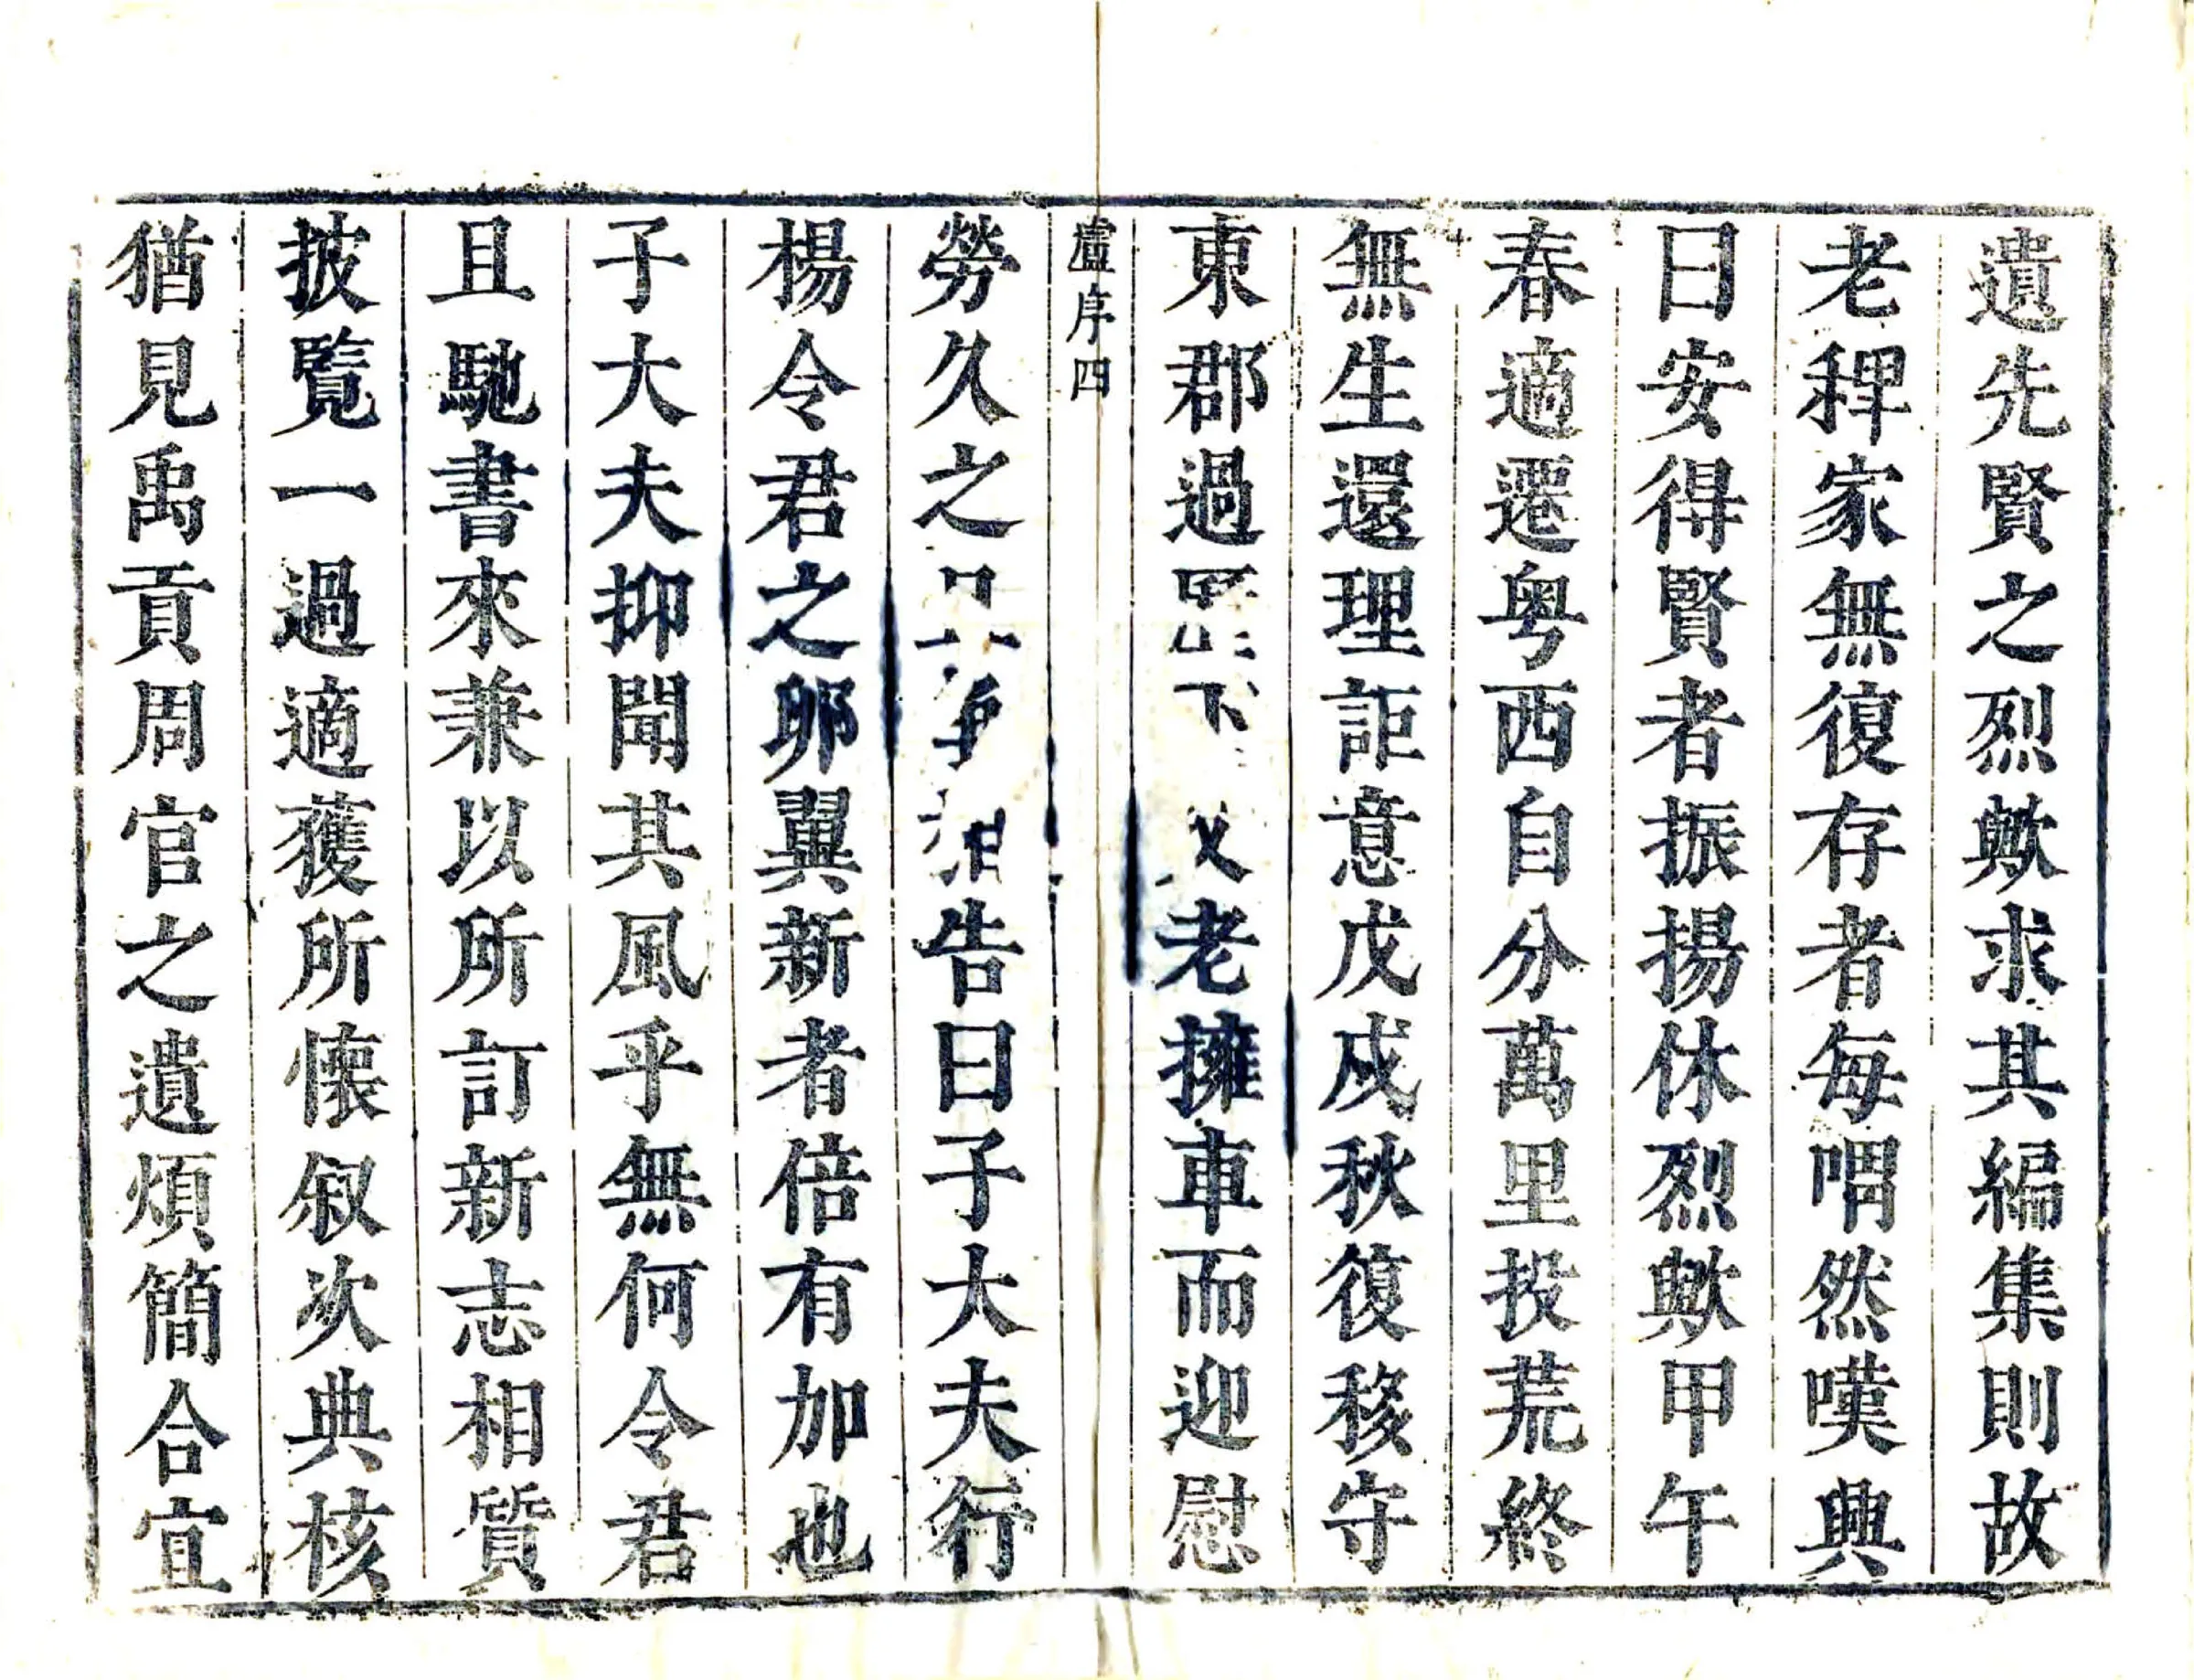 遺先賢之烈歟求其編集則故
老稗家無復存者每喟然嘆興
曰安得賢者振揚休烈歟甲午
春適遷粤西自分萬里投荒終
無生還理詎意戊戌秋復移守
東郡過父老擁車而迎慰
盧序四
勞久之爭相告曰子大夫行
楊令君之卵翼新者倍有加也
子大夫抑聞其風乎無何令君
且馳書來兼以所訂新志相質
披覧一過適獲所懷叙次典核
猶見禹貢周官之遺煩簡合宜